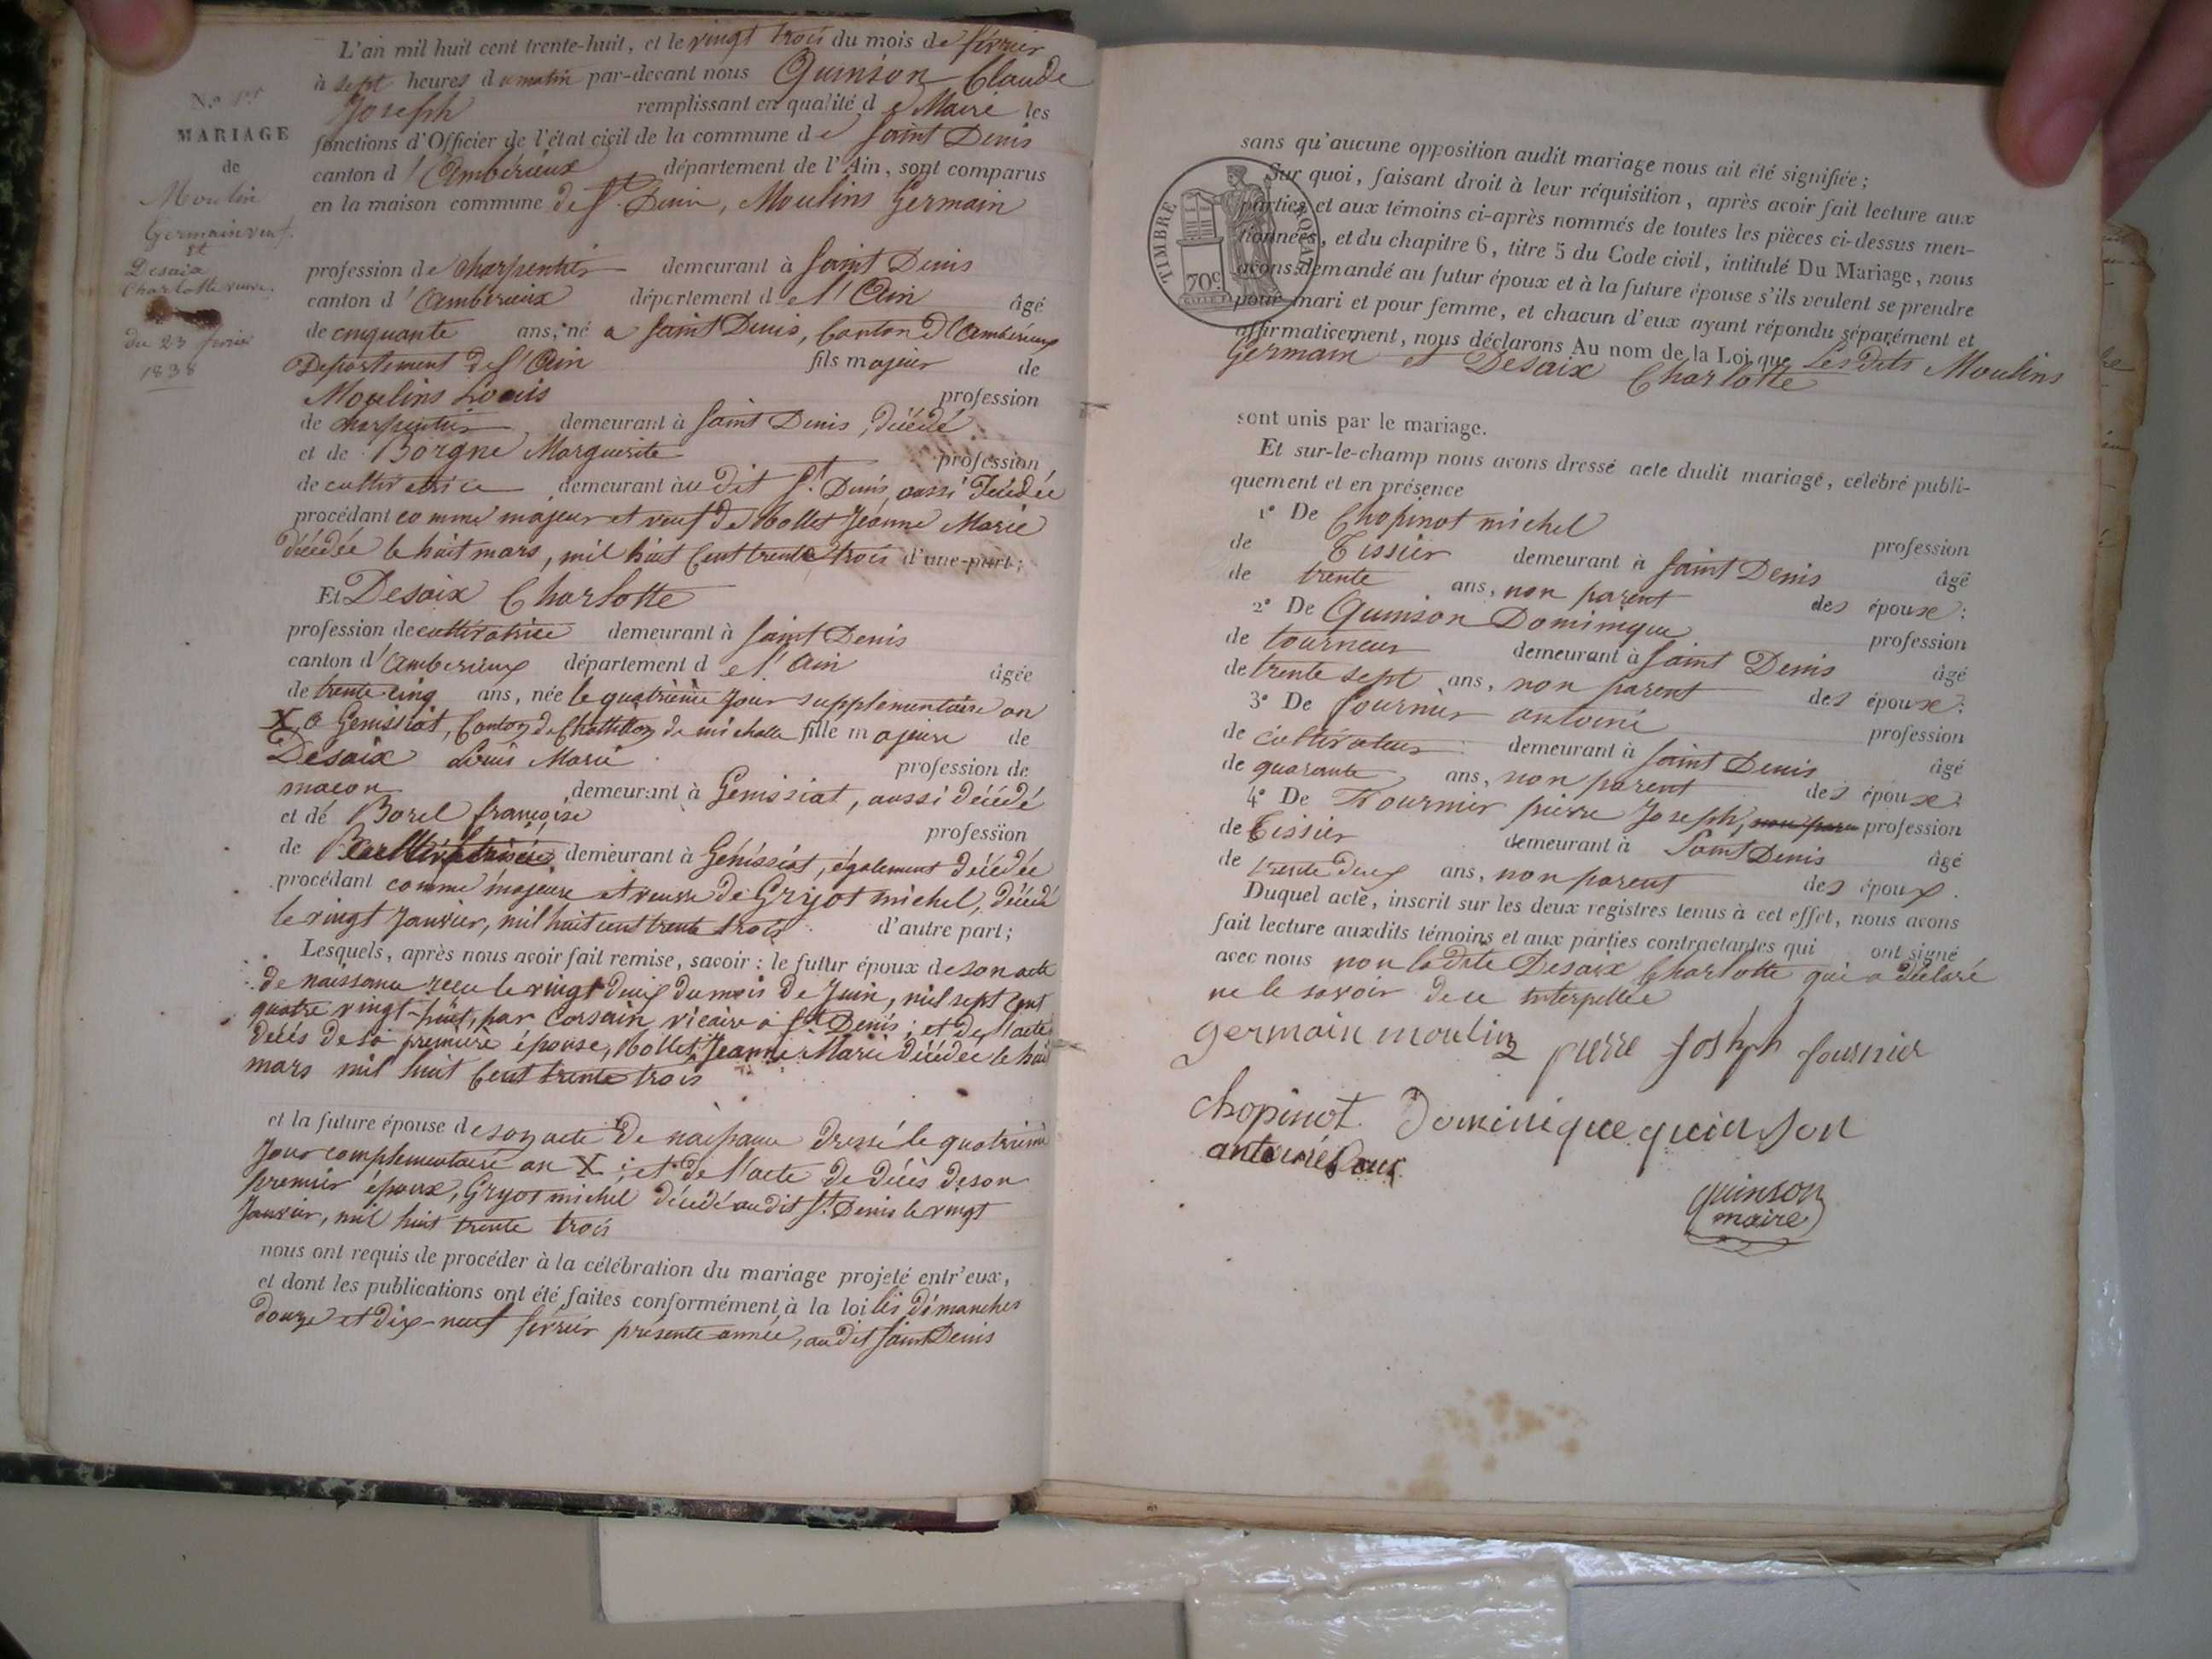 L'an mil huit cent trente-huit, et le vingt trois du mois de février
à sept heures du matin par-devant nous Quinson Claude
Joseph remplissant en qualité de Maire les
fonctions d'Officier de l'état civil de la commune de Saint Denis
canton d'Ambérieux département de l'Ain, sont comparus
en la maison commune de St. Denis, Moulins Germain
profession de charpentier demeurant à Saint Denis
canton d'Ambérieux département de l'Ain âgé
de cinquante ans, né a Saint Denis, Canton d'Ambérieux
Département de l'Ain fils majeur de
Moulins Louis profession
de charpentier demeurant à Saint Denis, décédé
et de Borgne Marguerite profession
de cultivatrice demeurant audit St. Denis, aussi décédée
procédant comme majeur et veuf de Mollet Jeanne Marie
décédée le huit mars, mil huit Cent trente trois d'une part;
Et Desaix Charlotte
profession de cultivatrice demeurant à Saint Denis
canton d'Amberieux département de l'Ain âgée
de trente cinq ans, née le quatrième jour supplementaire an
X, à Genissiat, Canton de Chattillon de michalle fille majeure de
Desaix Louis Marie profession de
macon demeurant à Genissiat, aussi décédé
et de Borel françoise profession
de demeurant à Génissiat, également décédée
procédant comme majeure et veuve de Gryot michel, décédé
le vingt Janvier, mil huit cent trente trois d'autre part;
Lesquels, après nous avoir fait remise, savoir: le futur époux de son acte
de naissance reçu le vingt deux du mois de Juin, mil sept Cent
quatre vingt-huit, par Corsain vicaire à St Denis; et de l'acte
décès de sa première épouse, Mollet Jeanne Marie décédée le huit
mars mil huit Cent trente trois
et la future épouse de son acte de naissance dressé le quatrième
Jour complementaire an X; et de l'acte de décès de son
premier époux, Gryot michel décédé audit St. Denis le vingt
Janvier, mil huit trente trois
nous ont requis de procéder à la célébration du mariage projeté entr'eux,
et dont les publications ont été faites conformément à la loi les dimanches
douze et dix-neuf février présente année, audit Saint Denis
MARIAGE
de
Moulin
Germain veuf.
et
Desaix
Charlotte veuve.
du 23 février
1838
sans qu'aucune opposition audit mariage nous ait été signifiée;
Sur quoi, faisant droit à leur réquisition, après avoir fait lecture aux
parties et aux témoins ci-après nommés de toutes les pièces ci-dessus men-
tionnées, et du chapitre 6, titre 5 du Code civil, intitulé Du Mariage, nous
avons demandé au futur époux et à la future épouse s'ils veulent se prendre
pour mari et pour femme, et chacun d'eux ayant répondu séparément et
affirmativement, nous déclarons Au nom de la Loi que Lesdits Moulins
Germain et Desaix Charlotte
sont unis par le mariage.
Et sur-le-champ nous avons dressé acte dudit mariage, célébré publi-
quement et en présence
1° De Chopinot michel profession
de Tissier demeurant à Saint Denis âgé
de trente ans, non parent des époux:
2° De Quinson Dominique profession
de tourneur demeurant à Saint Denis âgé
de trente sept ans, non parent des époux:
3° De Fournier antoine profession
de cultivateur demeurant à Saint Denis âgé
de quarante ans, non parent des époux:
4° De Fournier pierre Joseph, profession
de Tissier demeurant à Saint Denis âgé
de trente deux ans, non parent des époux.
Duquel acte, inscrit sur les deux registres tenus à cet effet, nous avons
fait lecture auxdits témoins et aux parties contractantes qui ont signé
avec nous non ladite Desaix Charlotte qui a déclaré
ne le savoir de ce interpellée
germain moulin pierre joseph fournier
chopinot Dominique quinson
antoine
quinson
maire
TIMBRE ROYAL
70c.